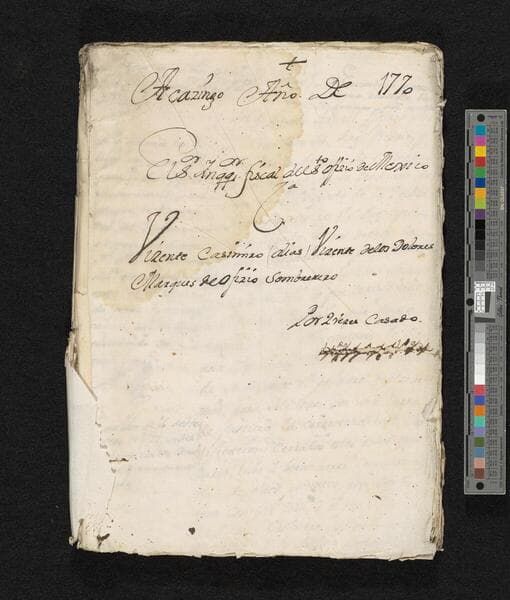 Acazingo Año De 1770
El Sr. Inqqr. fiscal del Sto. ofizio de Mexico
Ca
Vizente Casimiro (alias) Vizente de los Dolores
Marques de ofizio Sombrerero
Por 2 vezes Casado.